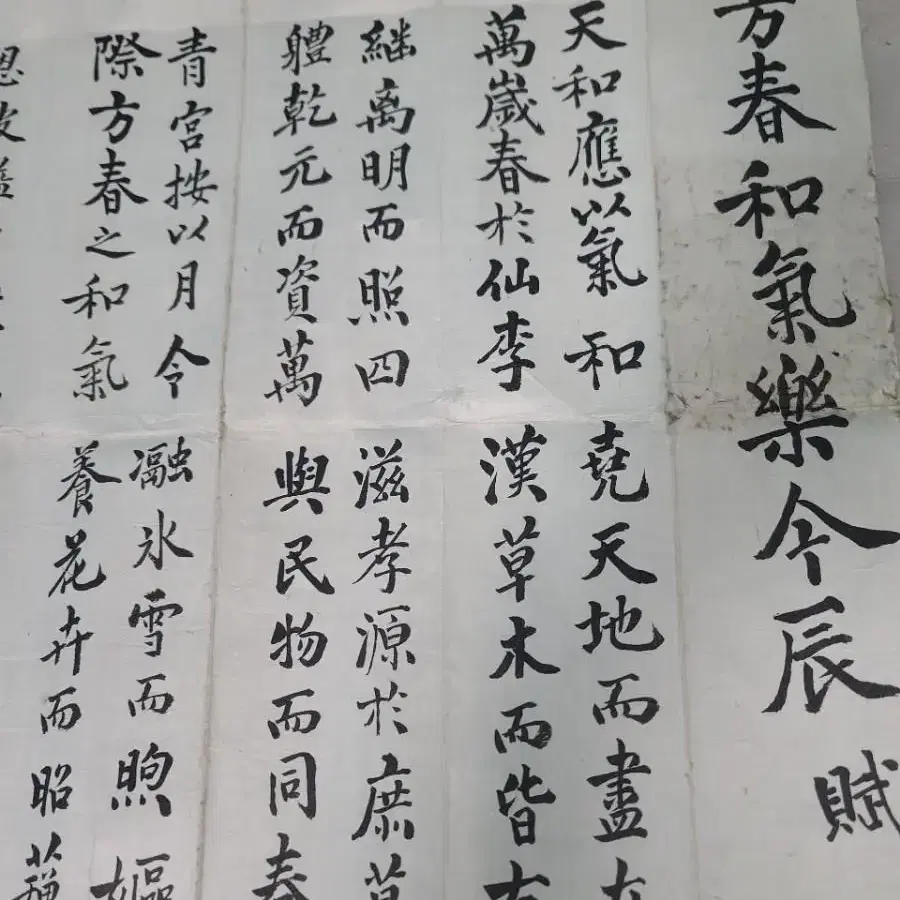 方春和氣樂今辰
賦
天和應以氣和
萬歲春於仙李
継离明而照四
軆乾元而資萬
青宮按以月令
際方春之和氣
恩波
堯天地而盡
漢草木而皆
滋孝源於庶草
與民物而同春
瀜氷雪而煦嫗
養花卉而昭蘇